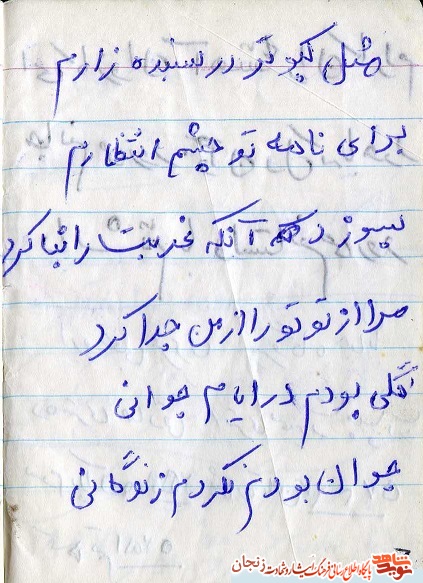 مثل کبوتر در سبزه زارم
برای نامه تو چشم انتظارم
بسوزد آنکه غربت را بنا کرد
مرا از تو تو را از من جدا کرد
گلی بودم در ایام جوانی
جوان بودم نکردم زندگانی
نوید شاهد
پایگاه اطلاع رسانی فرهنگ ایثار و شهادت زنجان